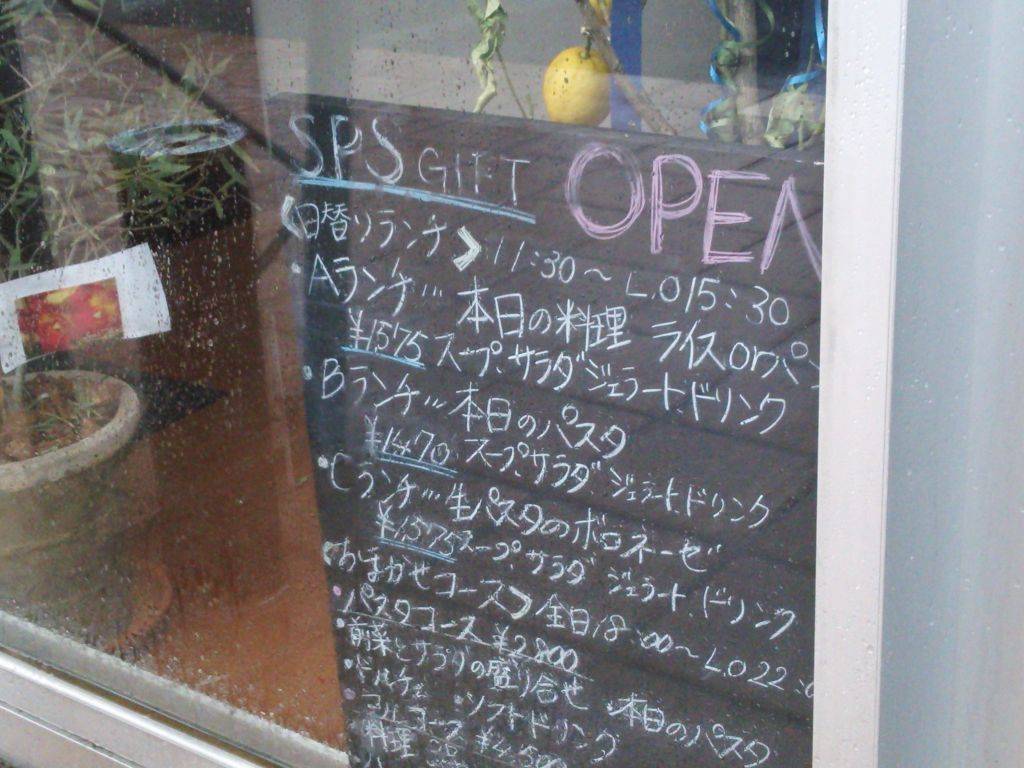 SPS GIFT OPEN
《日替りランチ》 11:30〜L.O15:30
・Aランチ… 本日の料理 ライスorパン
¥1575 スープ、サラダ ジェラート、ドリンク
・Bランチ… 本日のパスタ
¥1470 スープ サラダ、ジェラート、ドリンク
・Cランチ… 生パスタのボロネーゼ
¥1575 スープ、サラダ ジェラート、ドリンク
《おまかせコース》 全日18:00〜L.O22:0
・パスタコース ¥2,800
・前菜とサラダの盛り合せ 本日のパスタ
・ドルチェ ソフトドリンク
コース
料理